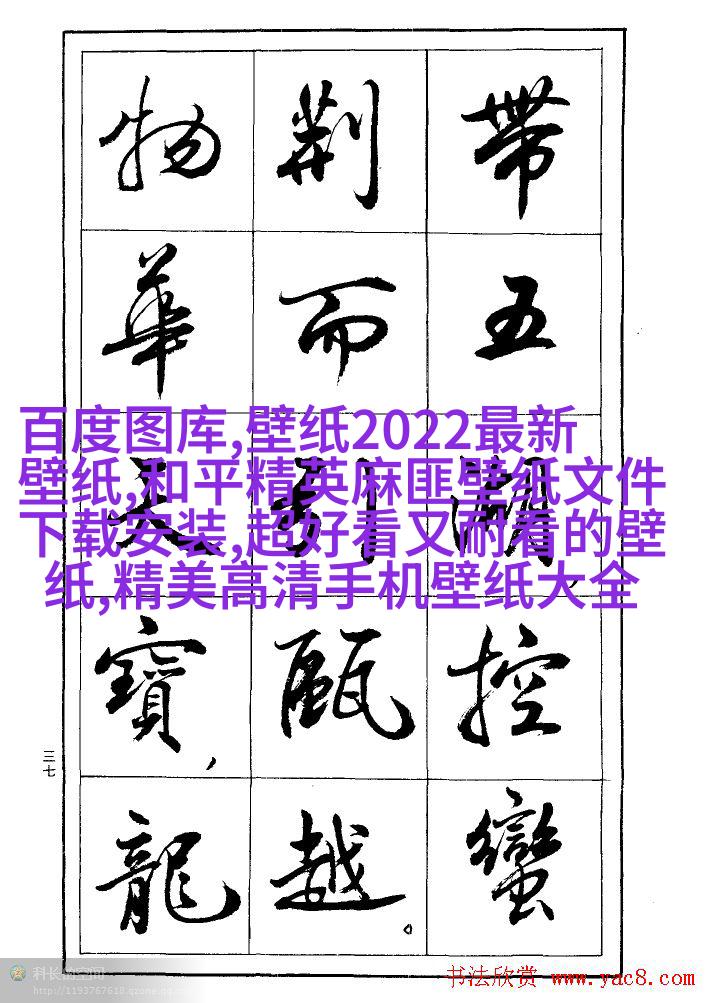 帶五湖,控蠻
荆而引甌越。
物華天寶,龍
百度图库,壁纸2022最新
壁纸,和平精英麻匪壁纸文件
下载安装,超好看又耐看的壁
纸,精美高清手机壁纸大全
三七
科长的空间
http://1193767618.qzone.qq.com
书法欣赏 www.yac8.com